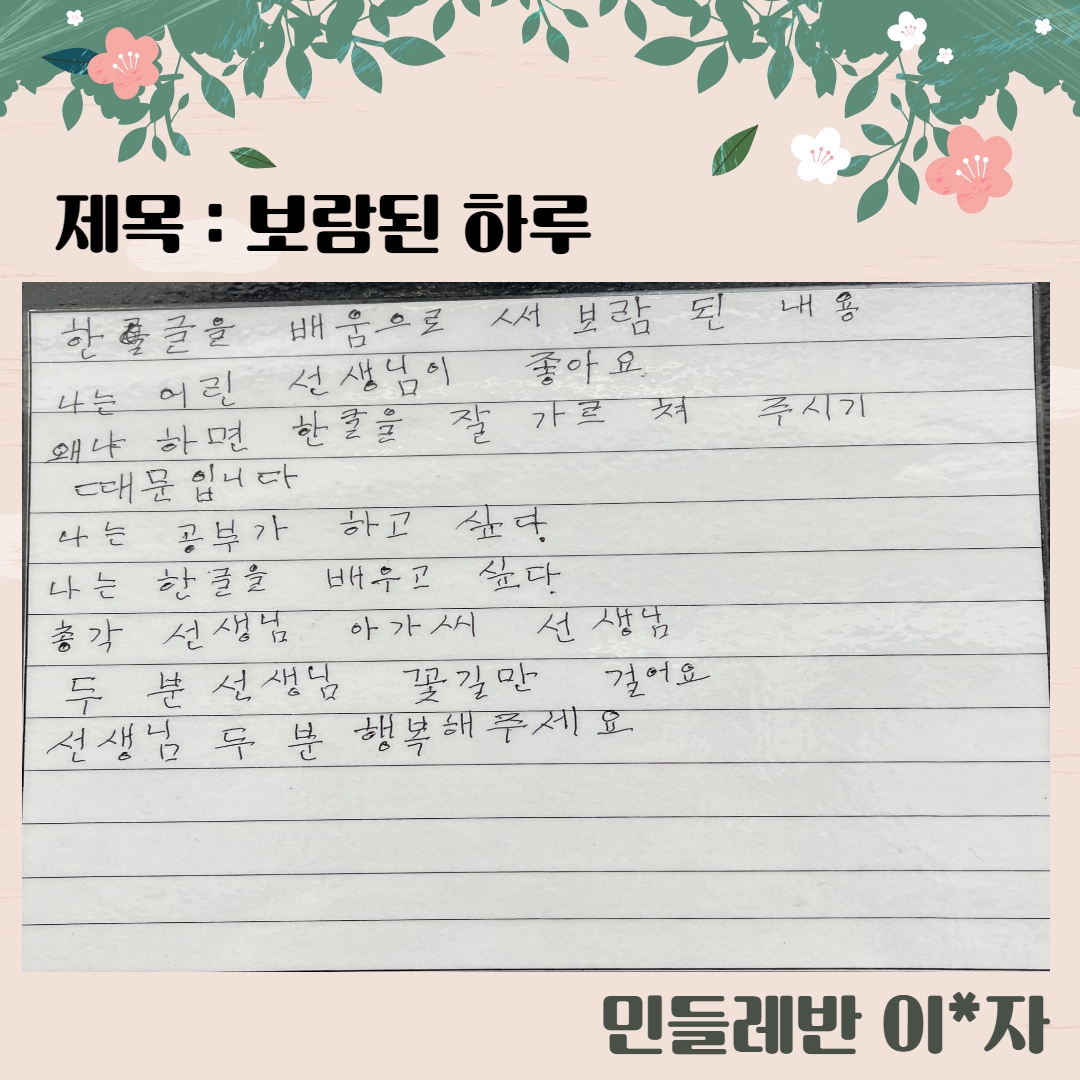 제목 : 보람된 하루
한글을 배움으로 써 보람 된 내용
나는 어린 선생님이 좋아요.
왜냐 하면 한글을 잘 가르 쳐 주시기
때문입니다
나는 공부가 하고 싶다.
나는 한글을 배우고 싶다.
총각 선생님 아가씨 선생님
두 분 선생님 꽃길만 걸어요
선생님 두 분 행복해주세요
민들레반 이*자